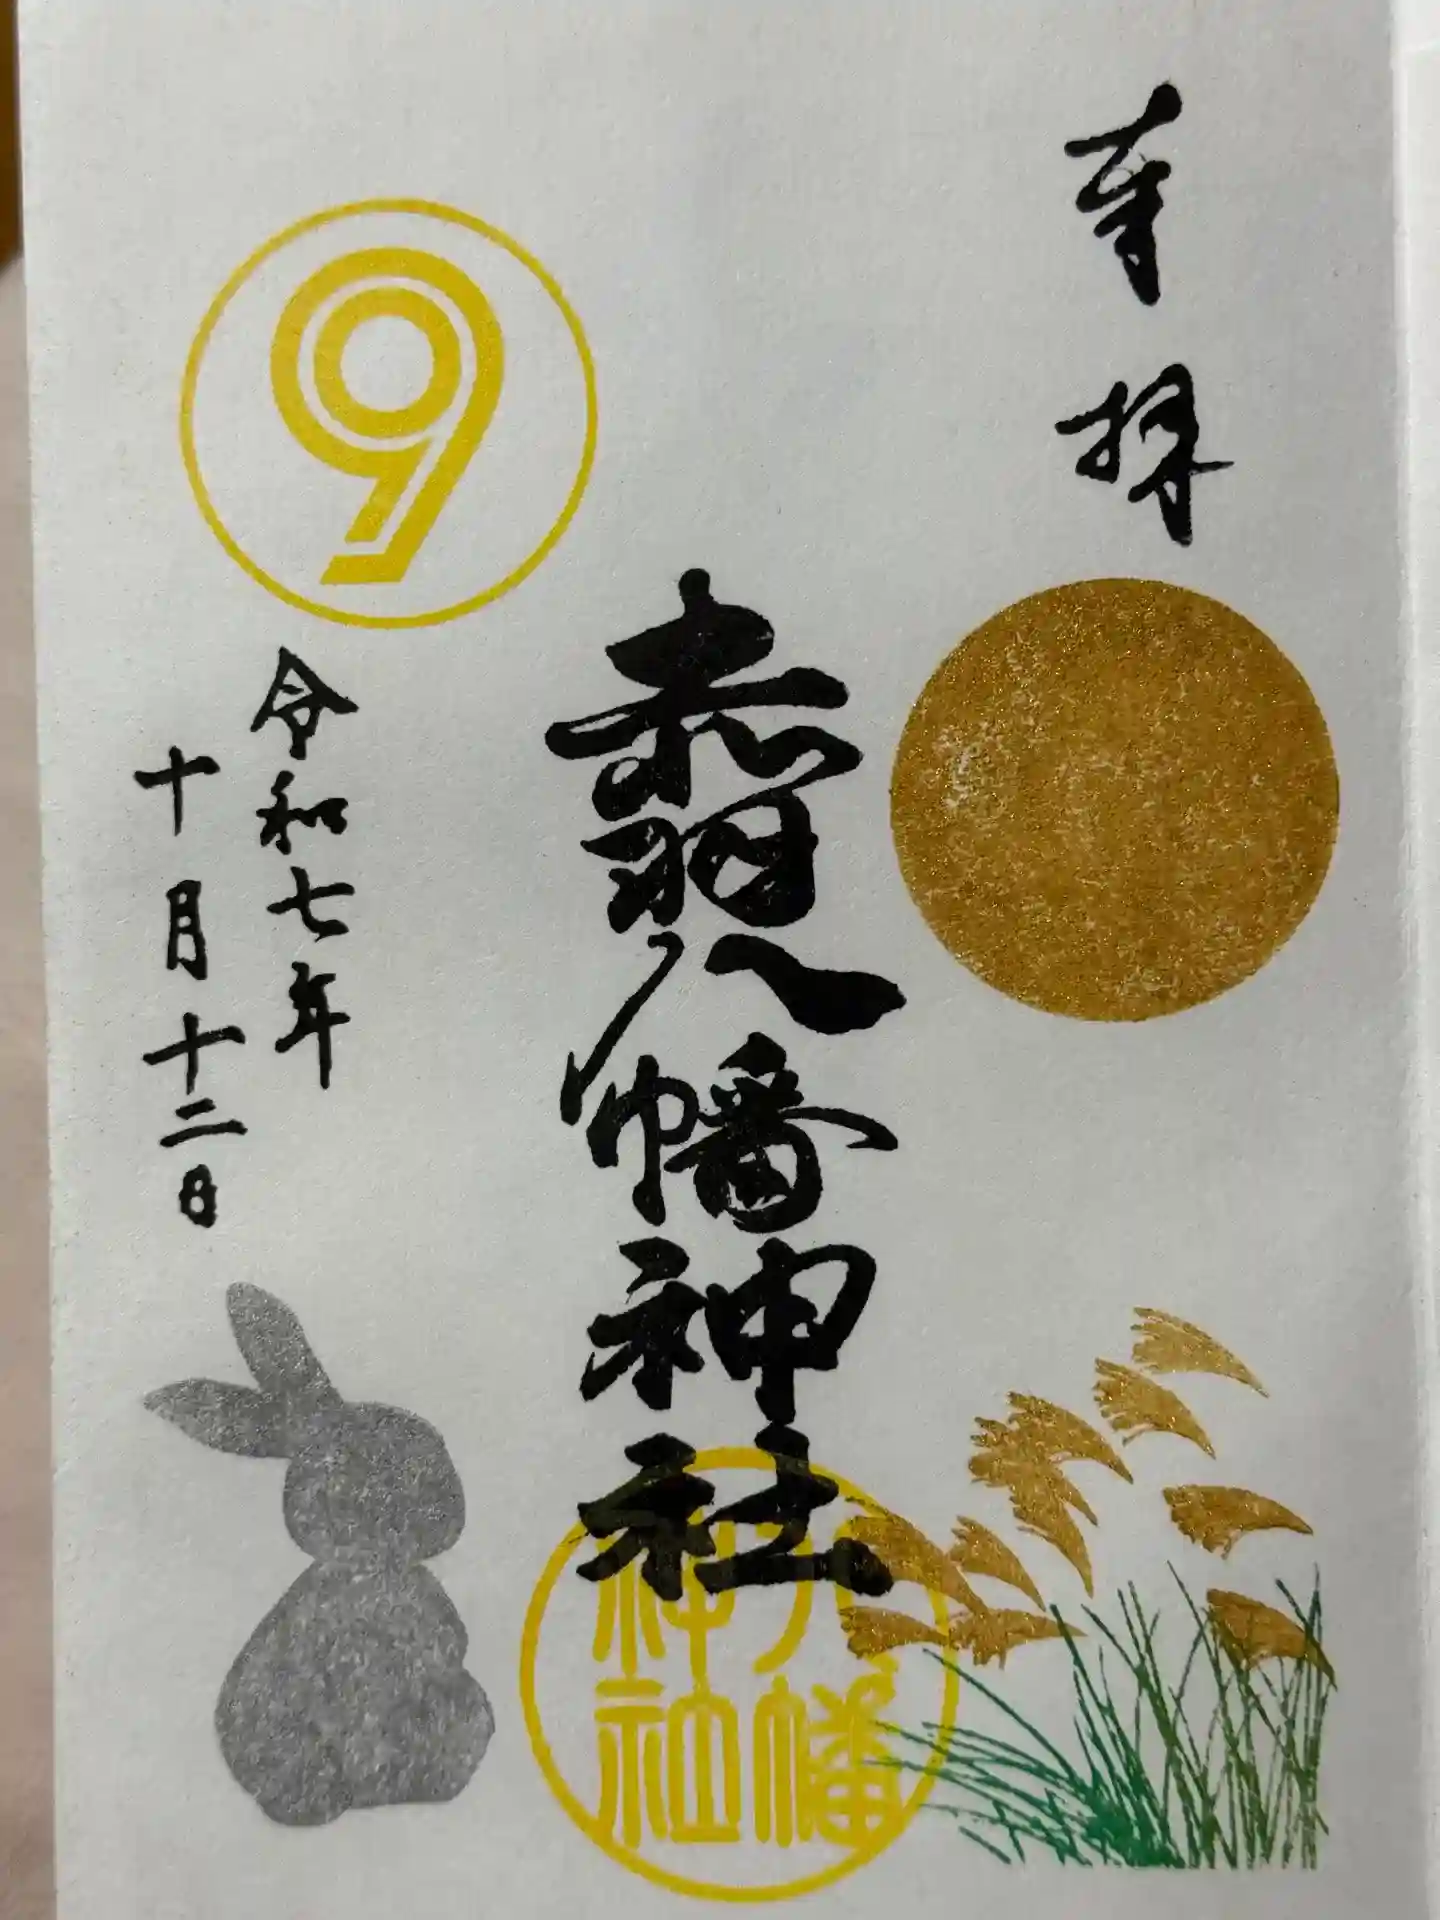 奉拝
赤羽八幡神社
令和七年
十月十二日
9
八幡
神社